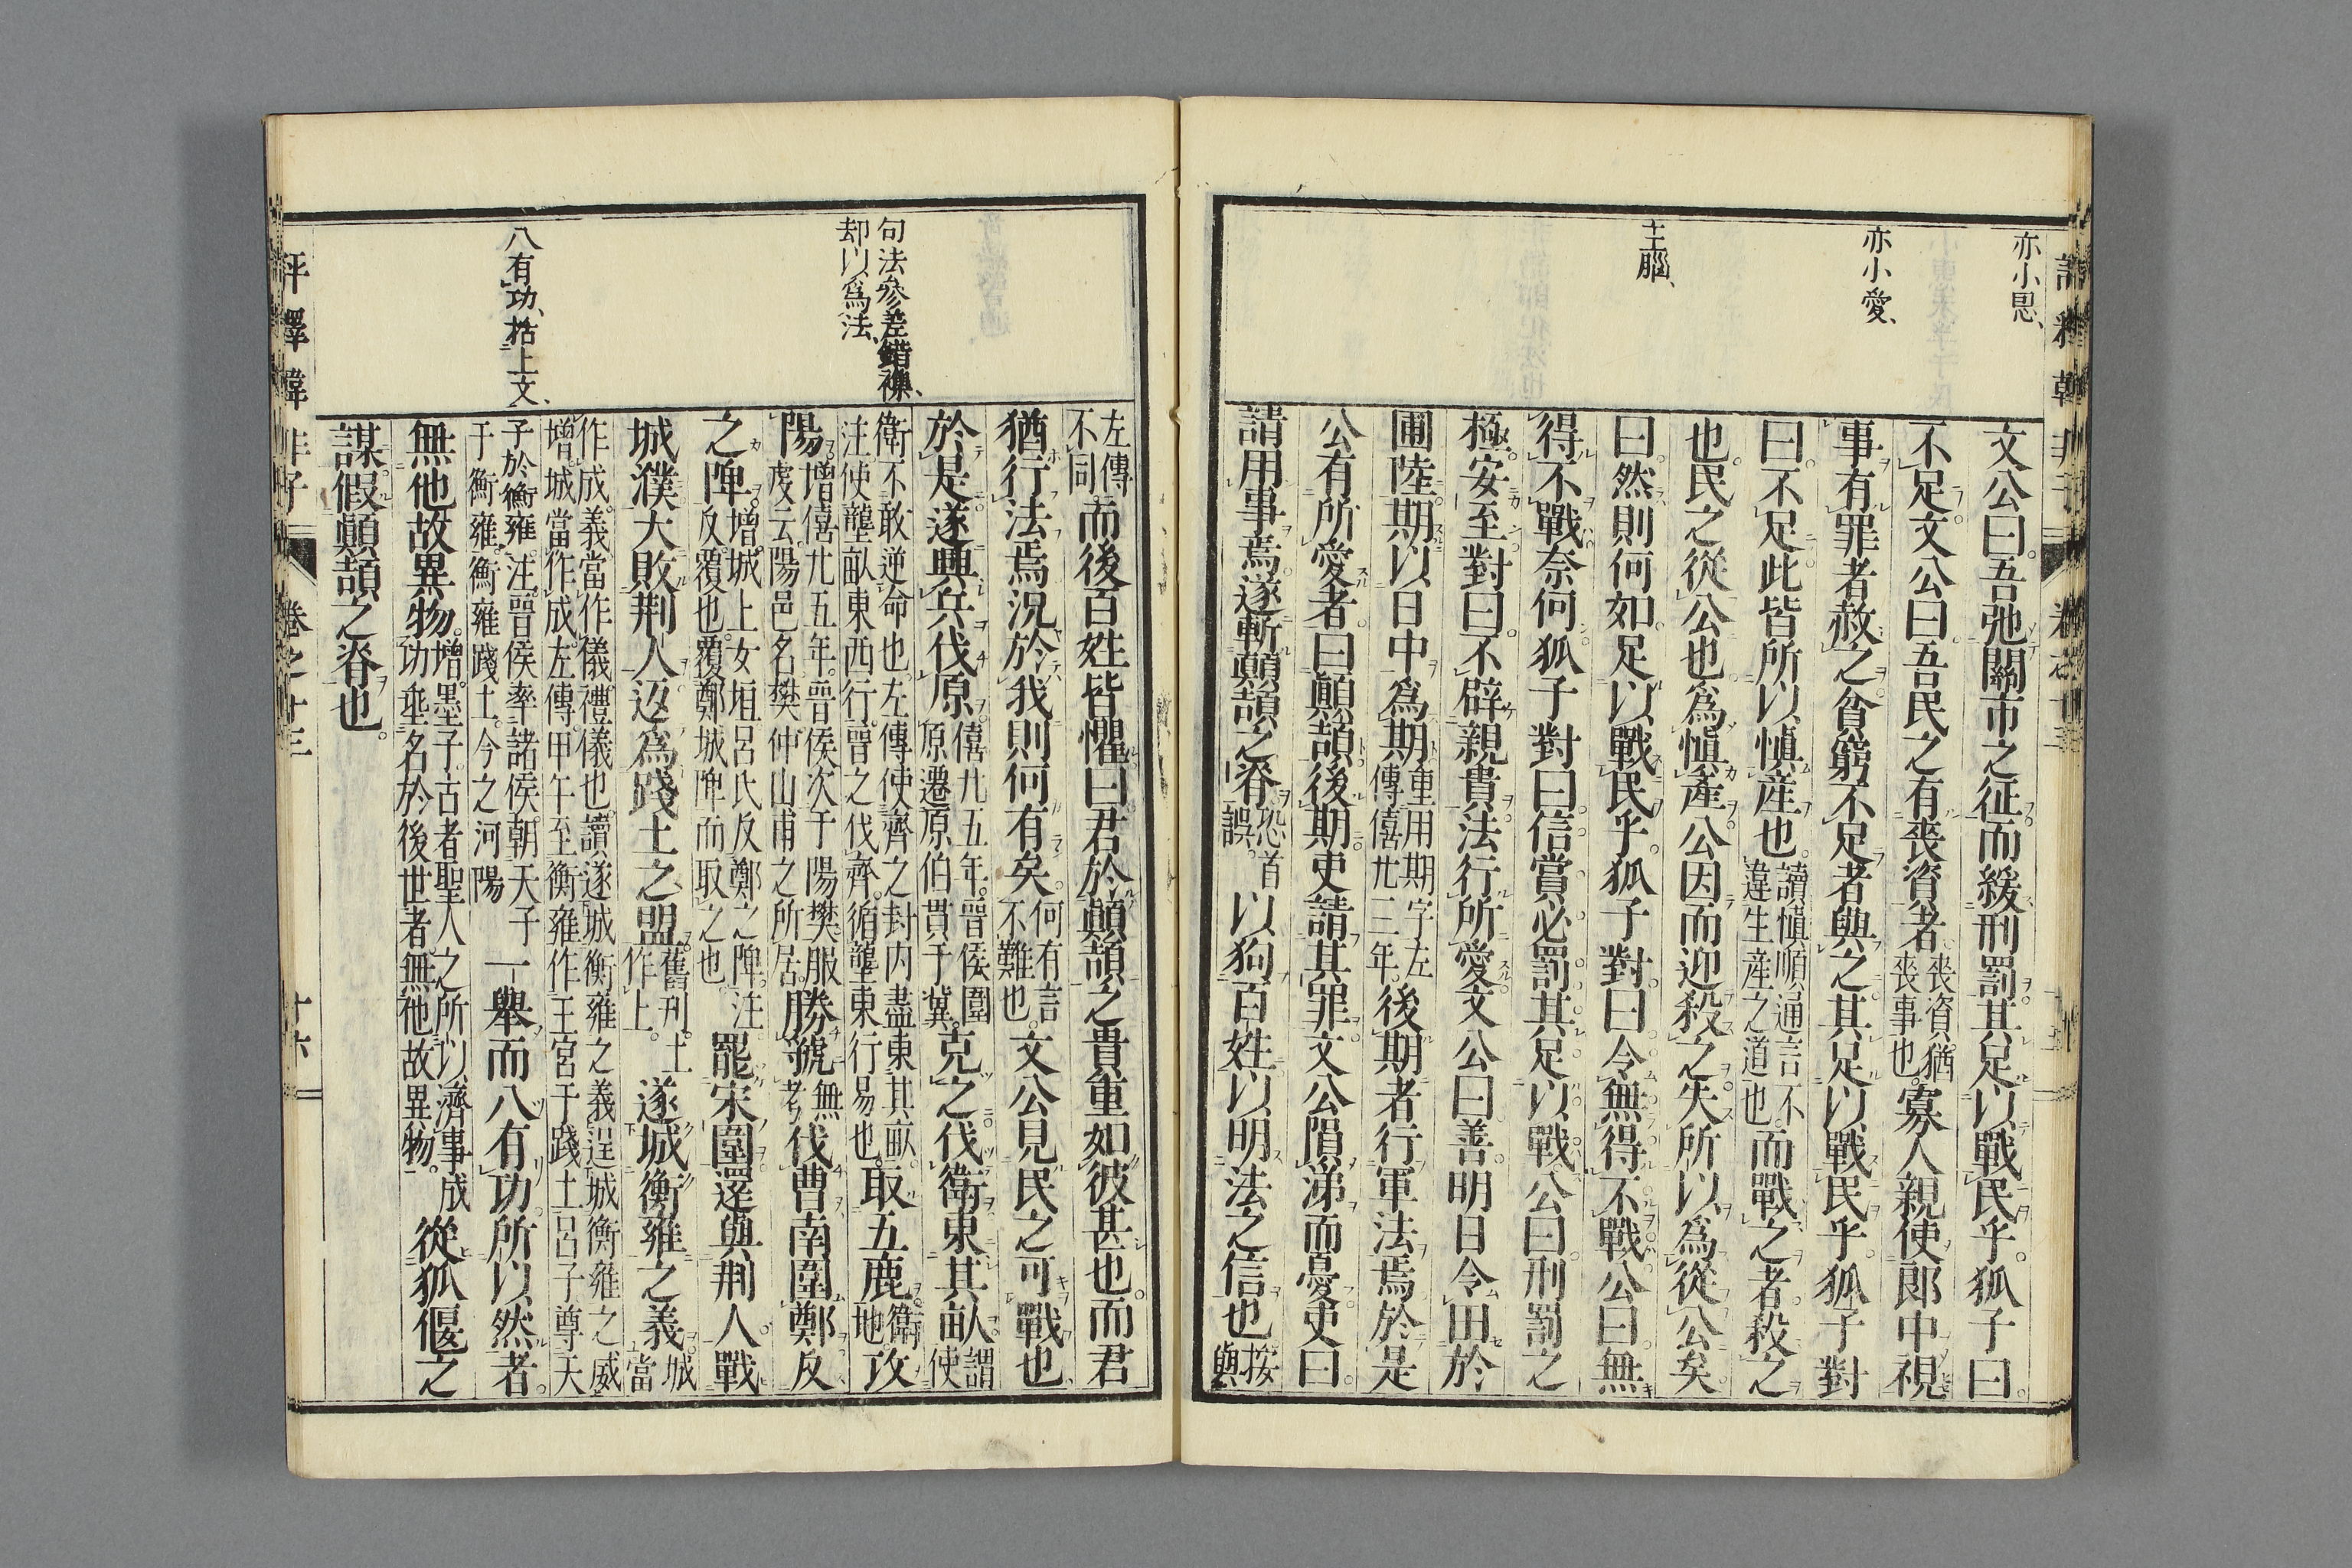 亦小恩、
亦小愛、
主腦、
文公曰。吾弛關市之征而緩刑罰其足以戰民乎。狐子曰。
不足。文公曰。吾民之有喪資者。喪資猶喪事也。寡人親使郎中視
事。有罪者赦之。貧窮不足者與之。其足以戰民乎。狐子對
曰。不足。此皆所以愼産也。讀愼順通言不違生産之道也而戰之者殺之
也。民之從公也。爲愼產公因而迎殺之失所以爲從公矣
曰。然則何如足以戰民乎。狐子對曰。令無得不戰公曰。無
得不戰奈何。狐子對曰。信賞必罰其足以戰。公曰。刑罰之
極安至。對曰。不辟親貴法行所愛。文公曰。善。明日令田於
圃陸。期以日中爲期重用期字左傳僖廿三年。後期者行軍法焉。於是
公有所愛者曰顚頡。後期。吏請其罪。文公隕涕而憂。吏曰。
請用事焉。遂斬顚頡之脊恐首誤。以狥百姓。以明法之信也按與
句法參差錯襍、
却以爲法、
八有功、括上文、
左傳不同而後百姓皆懼曰。君於顚頡之貴重如彼甚也。而君
猶行法焉。況於我則何有矣。何有言不難也。文公見民之可戰也、
於是遂興兵伐原。僖廿五年。晉侯圍原遷原伯貫于冀。克之。伐衛東其畝。謂使
衛不敢逆命也。左傳使齊之封內盡東其畝。注使壟畝東西行。晉之伐齊。循壟東行易也。取五鹿。衛地。攻
陽。增僖廿五年。晉侯次于陽樊。服虔云。陽邑名樊仲山甫之所居。勝虢無考伐曹。南圍鄭反
之陴。增城上女垣呂氏反鄭之陴。注反覆也。覆鄭城陴而取之也。罷宋圍還與荆人戰
城濮大敗荆人。返爲踐土之盟。舊刊。土作上。遂城衡雍之義。城當
作成。義當作儀。禮儀也。讀遂城衡雍之義。逞城衡雍之威增城當作成。左傳甲午至衡雍作王宮于踐土呂子尊天
子於衡雍。注。晉侯率諸侯。朝天子于衡雍。衡雍踐土。今之河陽一擧而八有功。所以然者。
無他故異物。增。墨子。古者聖人之所以濟事成功埀名於後世者無他故異物。從狐偃之
謀。假顚頡之脊也。
評釋韓非子　卷之十三　十六